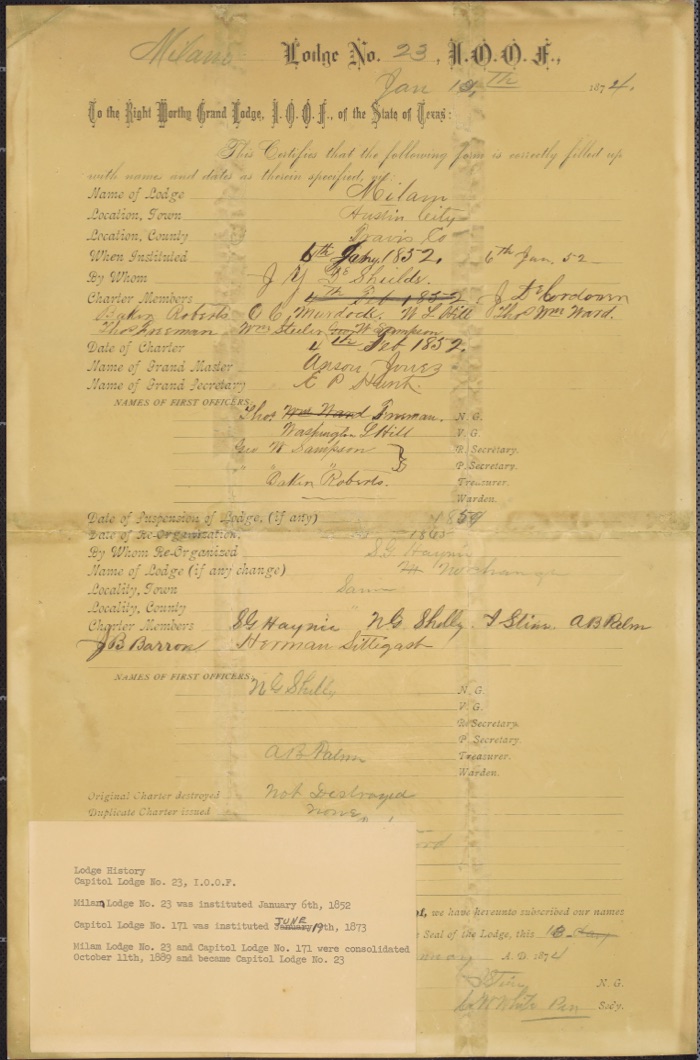 Milam Lodge No. 23, I.O.O.F.,
Jan th 1874.
To the Right Worthy Grand Lodge, I.O.O.F., of the State of Texas:
This Certifies that the following form is correctly filled up
with names and dates as therein specified,
Name of Lodge Milam
Location, Town Austin City
Location, County Travis Co
When Instituted 6th Jany. 1852. 6th Jan. 52
By Whom J De Shields.
Charter Members 4th Feb 1852. J De Cordova
Oaken Roberts C C Murdock. W L Hill Thos Wm Ward.
Thos Freeman Wm Geo W Sampson
Date of Charter 4th Feb 1852.
Name of Grand Master Anson Jones
Name of Grand Secretary E P Hunt.
NAMES OF FIRST OFFICERS:
Thos Wm Ward Freeman. N. G.
Washington L Hill V. G.
Geo W Sampson R. Secretary.
P. Secretary.
" Oaken Roberts. Treasurer.
Warden.
Date of Suspension of Lodge, (if any) 1859
Date of Re-Organization. 1865
By Whom Re-Organized S G Haynie
Name of Lodge (if any change) No change
Locality, Town Same
Locality, County "
Charter Members S G Haynie N G Shelly. A B Palm
J B Barron Herman Sittegast
NAMES OF FIRST OFFICERS:
N G Shelly N. G.
V. G.
R. Secretary.
P. Secretary.
A B Palm Treasurer.
Warden.
Original Charter destroyed Not Destroyed
Duplicate Charter issued None
we have hereunto subscribed our names
Seal of the Lodge, this 18 day
A. D. 1874
N. G.
White Secy.
Lodge History
Capitol Lodge No. 23, I.O.O.F.
Milam Lodge No. 23 was instituted January 6th, 1852
Capitol Lodge No. 171 was instituted January JUNE 19th, 1873
Milam Lodge No. 23 and Capitol Lodge No. 171 were consolidated
October 11th, 1889 and became Capitol Lodge No. 23